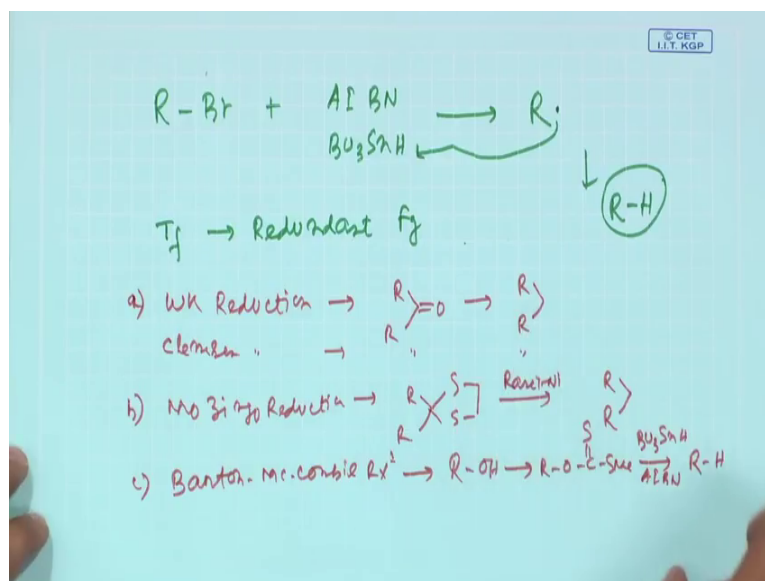 © CET
I.I.T. KGP
R – Br + AIBN → R·
BU3SnH
R-H
Tf → Redundant Fg
a) WK Reduction → R R >=O → R R >
Clemsen " → " "
b) Mo Zingo Reductin → R R S S Ranei-Ni → R R >
c) Barton-Mc.combie Rx² → R-OH → R-O-C(=S)-SMe BU3SnH AIBN → R-H